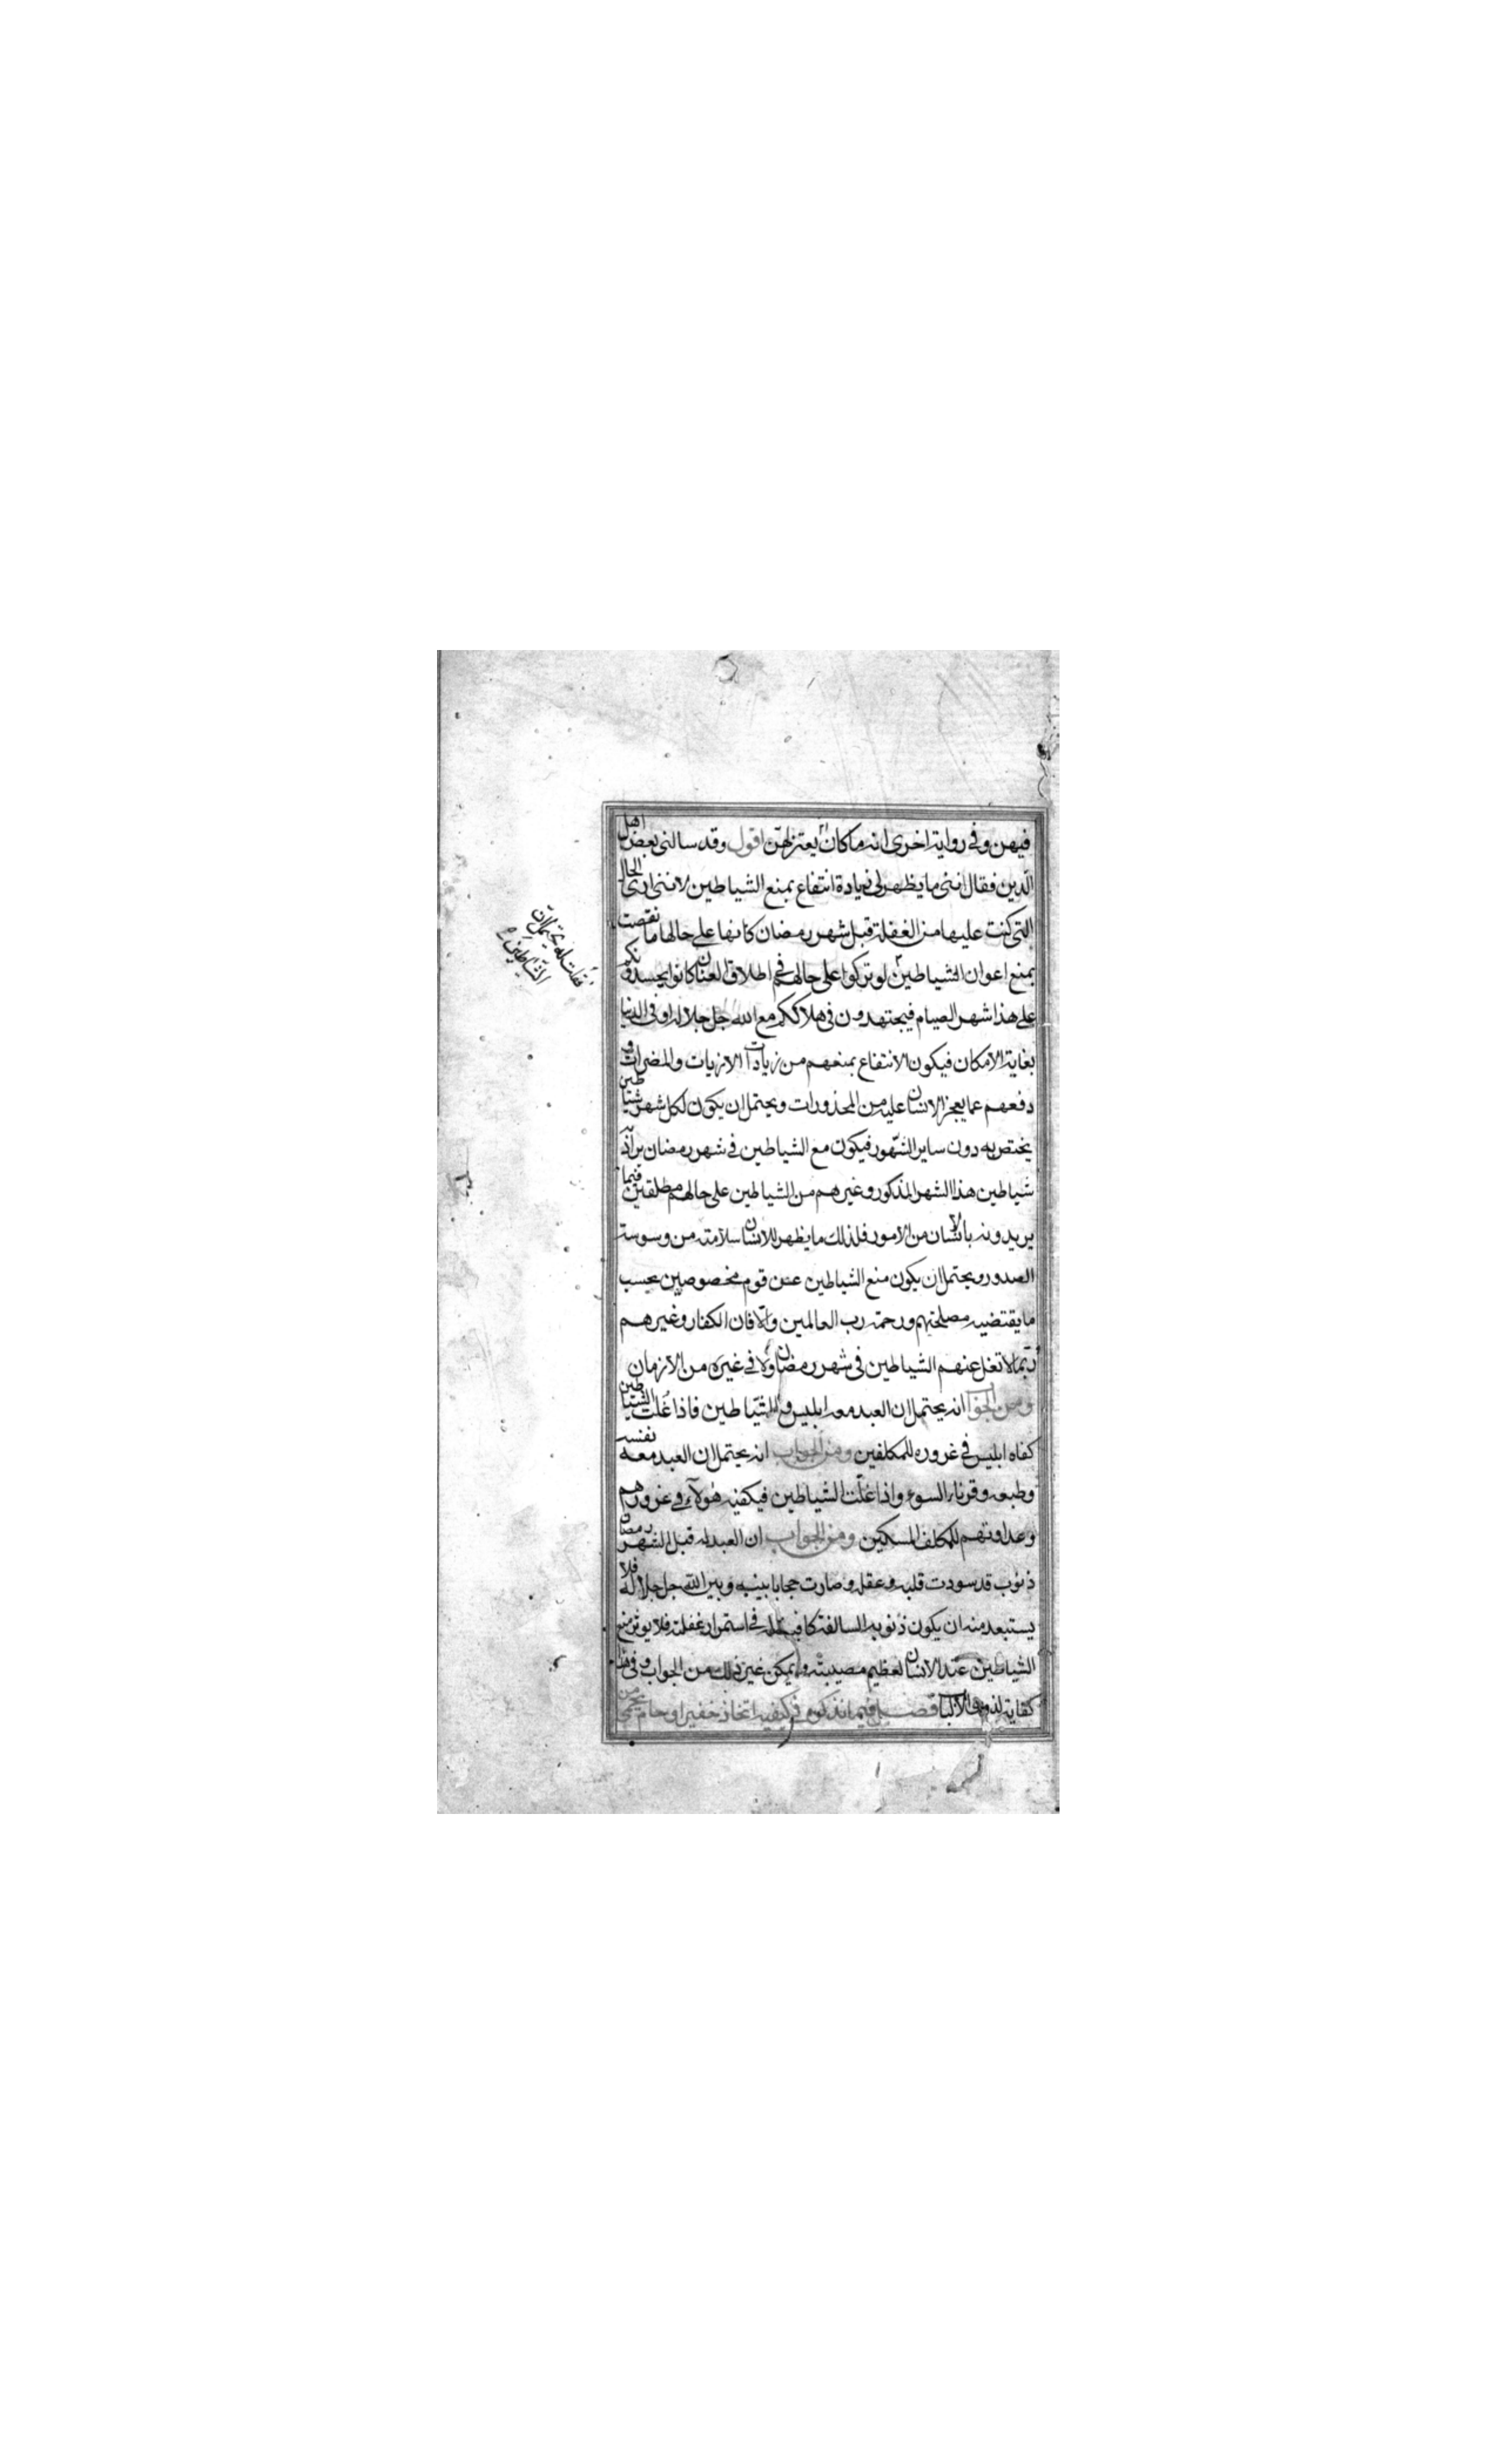 فيهن وفي رواية اخرى انه ما كان يعتزلهن اقول وقد سالني بعض اهل
الدين فقال انني ما يظهر لي زيادة انتفاع بمنع الشياطين لانني ارى الحال
التي كنت عليها من الغفلة قبل شهر رمضان كانها على حالها ما نقصت
بمنع اعوان الشياطين لو تركوا على حالهم في اطلاق العنان كانوا يحسدونكم
على هذا شهر الصيام فيجتهدون في هلاككم مع الله جل جلاله او في الدنيا
بغاية الامكان فيكون الانتفاع بمنعهم من زيادات الاذيات والمضرات و
دفعهم عما يعجز الانسان عليه من المحذورات ويحتمل ان يكون لكل شهر شياطين
يختص به دون ساير الشهور فيكون منع الشياطين في شهر رمضان يراد به
شياطين هذا الشهر المذكور وغيرهم من الشياطين على حالهم مطلقين فيما
يريدونه بالانسان من الامور فلذلك ما يظهر للانسان سلامته من وسوسة
الصدور ويحتمل ان يكون منع الشياطين عن قوم مخصوصين بحسب
ما يقتضيه مصلحتهم ورحمة رب العالمين والا فان الكفار وغيرهم
ربما لا تغل عنهم الشياطين في شهر رمضان ولا في غيره من الازمان
ومن الجواب انه يحتمل ان العبد معه ابليس والشياطين فاذا غلت الشياطين
كفاه ابليس في غروره للمكلفين ومن الجواب انه يحتمل ان العبد معه نفسه
وطبعه وقرناء السوء واذا غلت الشياطين فيكفيه هؤلاء في غرورهم
وعداوتهم للمكلف المسكين ومن الجواب ان العبد له قبل شهر رمضان
ذنوب قد سودت قلبه وعقله وصارت حجابا بينه وبين الله جل جلاله فلا
يستبعد منه ان يكون ذنوبه السالفة كافية له في استمرار غفلته فلا يوثر منع
الشياطين عند الانسان لعظيم مصيبته ويمكن غير ذلك من الجواب وفي هذا
كفاية لذوي الالباب فصل فيما نذكره في كيفية اتخاذ خفير او حام يحمي من
فقلت له يحتمل ان
الشياطين